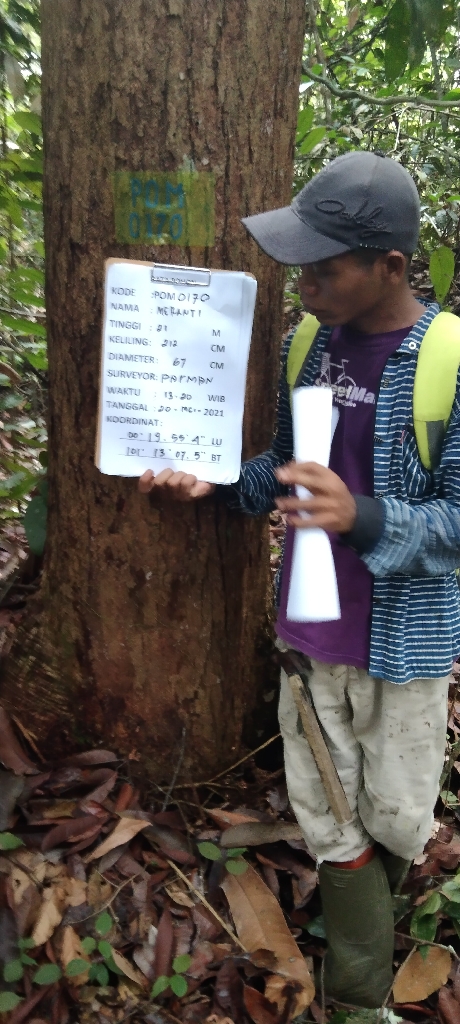 POM
0170
KODE : POM 0170
NAMA : MERANTI
TINGGI : 21 M
KELILING : 212 CM
DIAMETER : 67 CM
SURVEYOR : PAFMAN
WAKTU : 13.20 WIB
TANGGAL : 20 - MEI - 2021
KOORDINAT :
00° 19. 55' 4" LU
101° 13' 07. 5" BT
Oakley